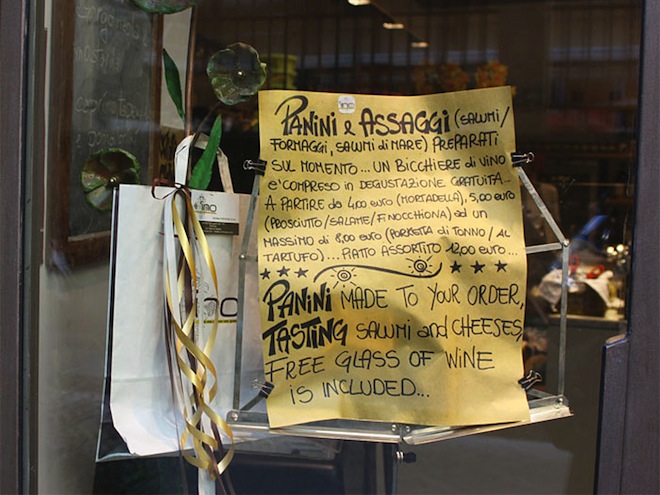 PANINI & ASSAGGI (SALUMI/
FORMAGGI, SALUMI di MARE) PREPARATI
SUL MOMENTO... UN BICCHIERE di VINO
E' COMPRESO in DEGUSTAZIONE GRATUITA...
A PARTIRE da 4,00 EURO (MORTADELLA), 5,00 EURO
(PROSCIUTTO/SALAME/FINOCCHIONA) ad UN
MASSIMO di 8,00 EURO (PORKETTA di TONNO / AL
TARTUFO)... PIATTO ASSORTITO 12,00 EURO...
PANINI MADE TO YOUR ORDER,
TASTING SALUMI and CHEESES,
FREE GLASS OF WINE
IS INCLUDED...
ino